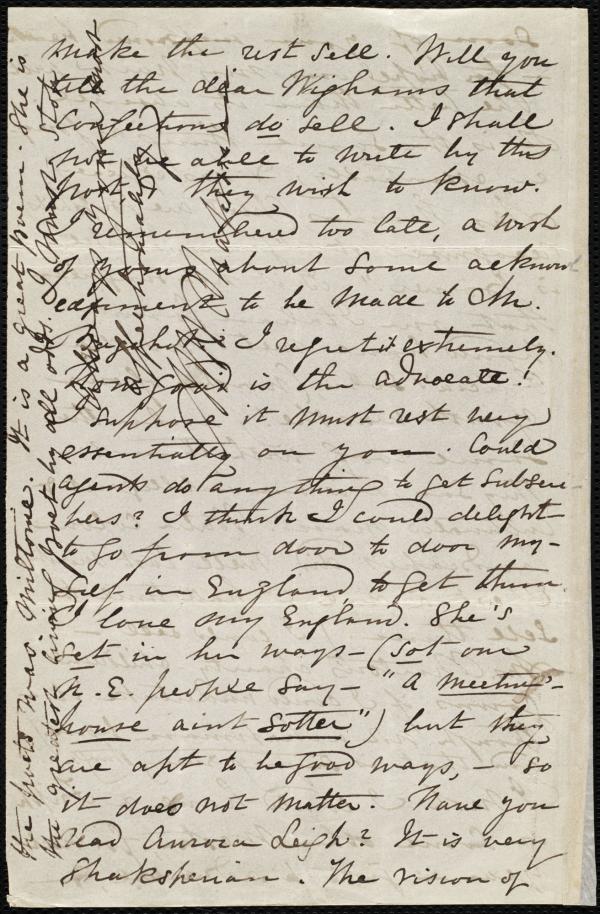 make the rest sell. Will you
tell the dear Wighams that
Confections do sell. I shall
not be able to write by this
post, & they wish to know.
I remembered too late, a wish
of yours about some acknowl
edgment to be made to Mr.
I regret it extremely.
How good is the advocate!
I suppose it must rest very
essentially on you. Could
agents do anything to get subscri-
bers? I think I could delight
to go from door to door my-
self in England to get them.
I love my England. She's
set in her ways - (sot our
N. E. people say - "A meetin'-
house aint sotter") but they
are apt to be good ways, - so
it does not matter. Have you
read Aurora Leigh? It is very
Shaksperian. The vision of
the poets was Miltonic. It is a great poem. She is
the greatest living poet by all odds. I must stop